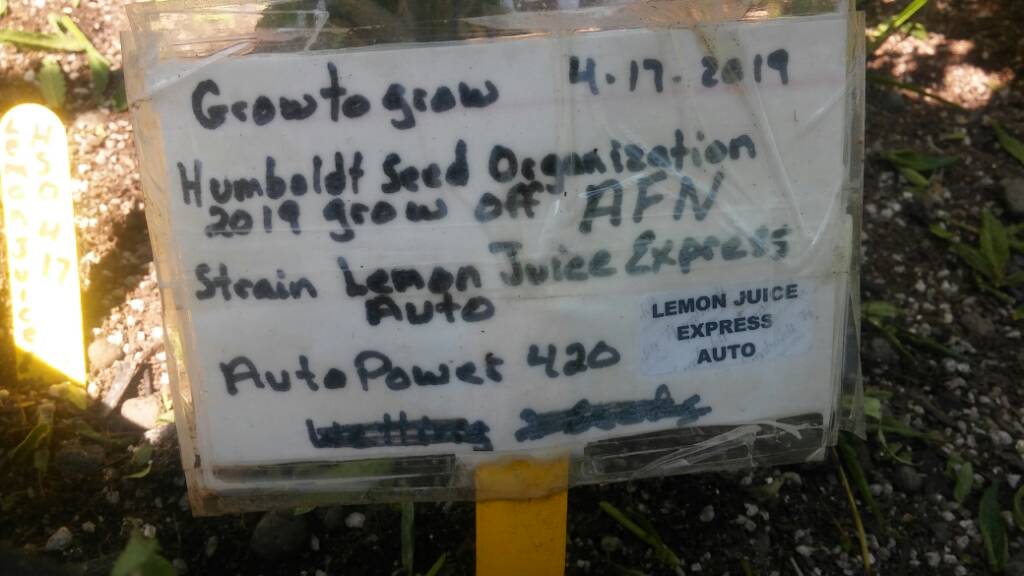 Growtogrow 4-17-2019
Humboldt Seed Organization
2019 grow off AFN
Strain Lemon Juice Express
Auto
LEMON JUICE
EXPRESS
AUTO
AutoPower 420
HSO 4 17
Lemon Juice